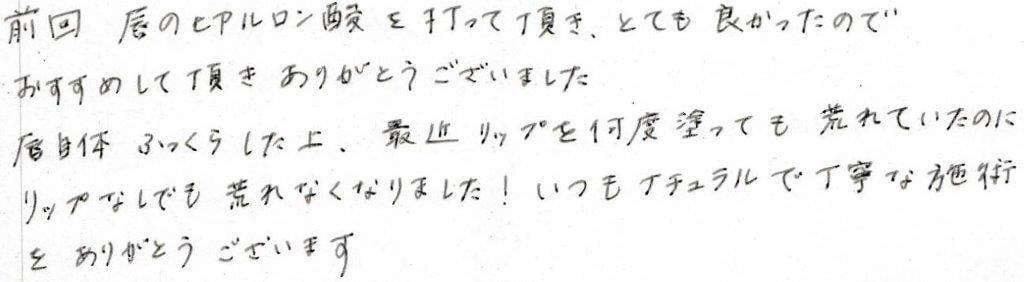 前回 唇のヒアルロン酸を打って頂き、とても良かったので
おすすめして頂きありがとうございました
唇自体ふっくらした上、最近リップを何度塗っても荒れていたのに
リップなしでも荒れなくなりました！いつもナチュラルで丁寧な施術
をありがとうございます